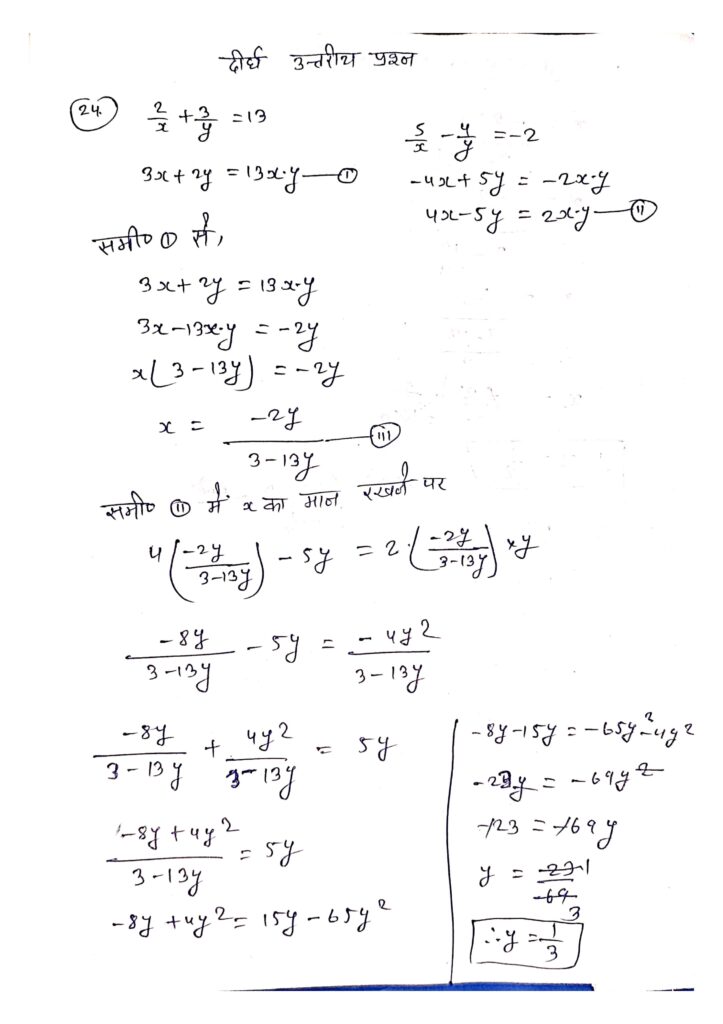 दीर्घ उत्तरीय प्रश्न
24. 2/x + 3/y = 13
3x + 2y = 13x·y — (I)
5/x - 4/y = -2
-4x + 5y = -2x·y
4x - 5y = 2x·y — (II)
समी० (I) से,
3x + 2y = 13x·y
3x - 13x·y = -2y
x(3 - 13y) = -2y
x = -2y/(3 - 13y) — (III)
समी० (II) में x का मान रखने पर
4(-2y/(3-13y)) - 5y = 2·(-2y/(3-13y)) × y
-8y/(3-13y) - 5y = -4y²/(3-13y)
-8y/(3-13y) + 4y²/(3-13y) = 5y
(-8y + 4y²)/(3-13y) = 5y
-8y + 4y² = 15y - 65y²
-8y - 15y = -65y² - 4y²
-23y = -69y²
-23 = -69y
y = -23/-69 1/3
∴ y = 1/3